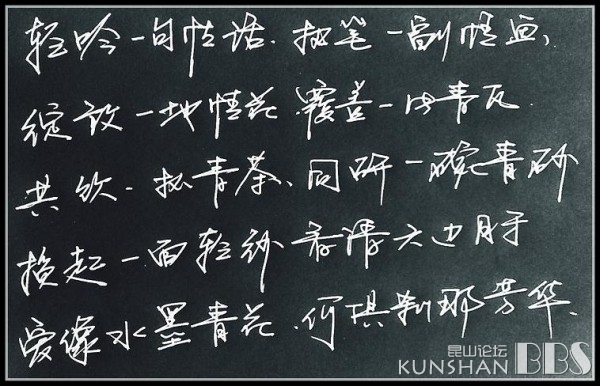 轻吟一句情话.执笔一副情画、
绽放一地情花.覆盖一片青瓦.
共饮一杯青茶、同研一碗青砂
挽起一面轻纱 看清天边月牙
爱像水墨青花.何惧刹那芳华.
昆山论坛
KUNSHAN BBS